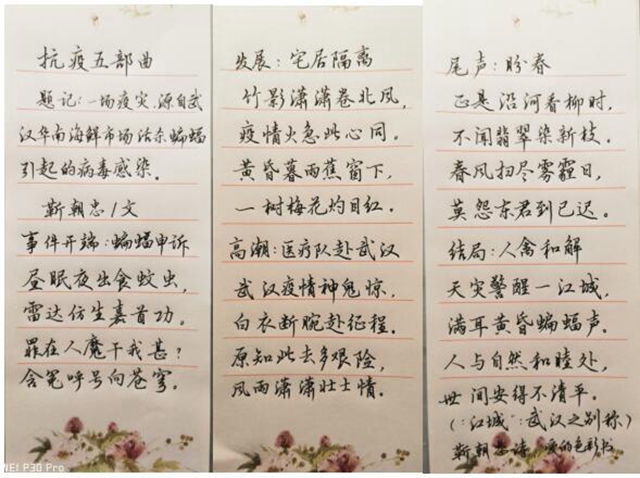 抗疫五部曲
题记:一场疫灾,源自武
汉华南海鲜市场活杀蝙蝠
引起的病毒感染。
靳朝忠/文
事件开端:蝙蝠申诉
昼眠夜出食蚊虫,
雷达仿生嘉首功。
罪在人魔干我甚?
含冤呼号向苍穹。
发展:宅居隔离
竹影潇潇卷北风,
疫情火急此心同。
黄昏暮雨蕉窗下,
一树梅花灼目红。
高潮:医疗队赴武汉
武汉疫情神鬼惊,
白衣断腕赴征程。
原知此去多艰险,
风雨潇潇壮士情。
尾声:盼春
正是沿河看柳时,
不闻翡翠染新枝。
春风扫尽雾霾日,
莫怨东君到已迟。
结局:人禽和解
天灾警醒一江城,
满耳黄昏蝙蝠声。
人与自然和睦处,
世间安得不清平。
(:江城":武汉之别称)
靳朝忠诗 爱的色彩书
WEI P30 Pro